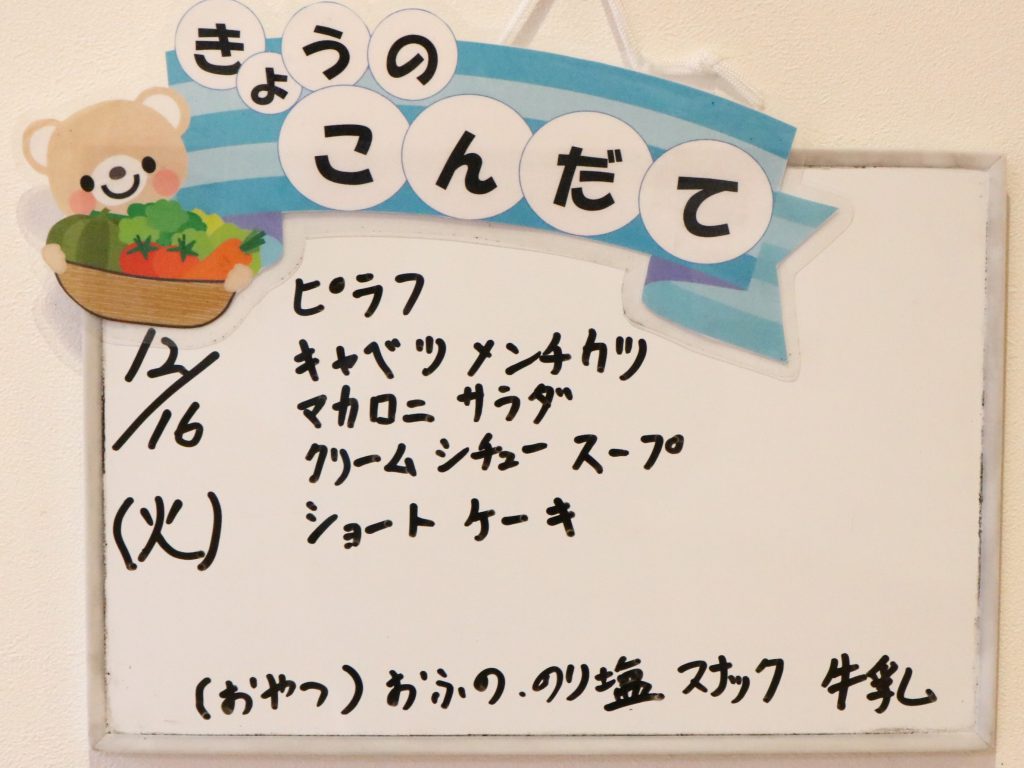 きょうの
こんだて
ピラフ
12/16
(火)
キャベツ メンチカツ
マカロニ サラダ
クリーム シチュー スープ
ショート ケーキ
(おやつ) おふの.のり塩 スナック 牛乳